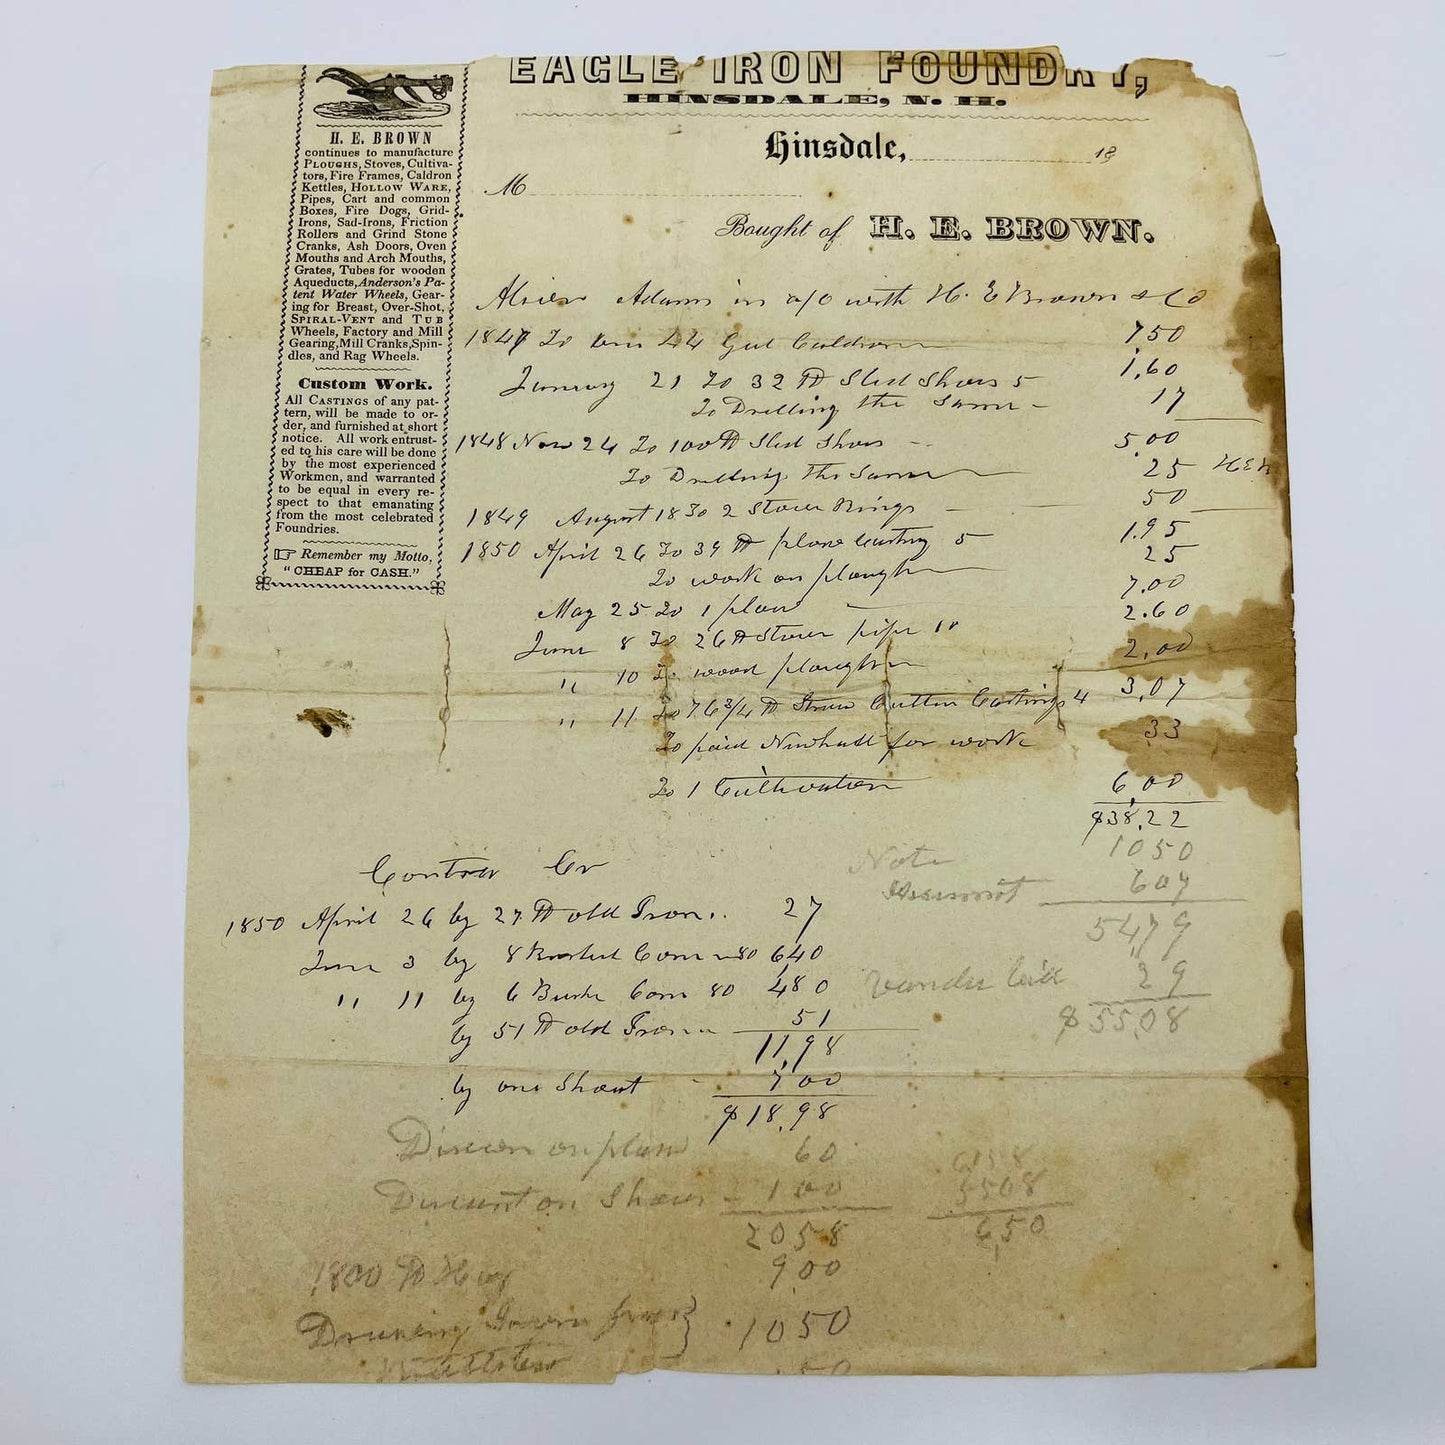 EAGLE IRON FOUNDRY,
HINSDALE, N. H.
Hinsdale, 18
M
Bought of H. E. BROWN.
H. E. BROWN
continues to manufacture
PLOUGHS, Stoves, Cultiva-
tors, Fire Frames, Caldron
Kettles, HOLLOW WARE,
Pipes, Cart and common
Boxes, Fire Dogs, Grid-
Irons, Sad-Irons, Friction
Rollers and Grind Stone
Cranks, Ash Doors, Oven
Mouths and Arch Mouths,
Grates, Tubes for wooden
Aqueducts, Anderson's Pa-
tent Water Wheels, Gear-
ing for Breast, Over-Shot,
SPIRAL-VENT and TUB
Wheels, Factory and Mill
Gearing, Mill Cranks, Spin-
dles, and Rag Wheels.
Custom Work.
All CASTINGS of any pat-
tern, will be made to or-
der, and furnished at short
notice. All work entrust-
ed to his care will be done
by the most experienced
Workmen, and warranted
to be equal in every re-
spect to that emanating
from the most celebrated
Foundries.
☞ Remember my Motto,
"CHEAP for CASH."
Adams in a/c with H. E Brown & Co
1847 To 44 Gal Caldron 750
January 21 To 32 lb Sled Shoes 5 1,60
To Drilling the Same - 17
1848 Nov 24 To 100 lb Sled Shoes 5,00
To Drilling the Same 25 HEB
1849 August 18 To 2 Stove Rings 50
1850 April 26 To 39 lb plow Casting 5 1.95
To work on plough 25
May 25 To 1 plow 7.00
June 8 To 26 lb Stove pipe 10 2.60
" 10 To wood plough 2,00
" 11 To 76 3/4 lb Straw Cutter Castings 4 3,07
To paid Newhall for work 33
To 1 Cultivator 6,00
$38,22
Note 1050
607
5479
29
$5508
Contra Cr
1850 April 26 by 27 lb old Iron 27
June 3 by 8 Bushel Corn 80 640
" 11 by 6 Bushe Corn 80 480
by 51 lb old Iron 51
11,98
by one Shoat - 700
$18,98
on plow 60
Discount on Shoes - 100
2058
1800 lb Hay 900
1050
50
5508
6,50